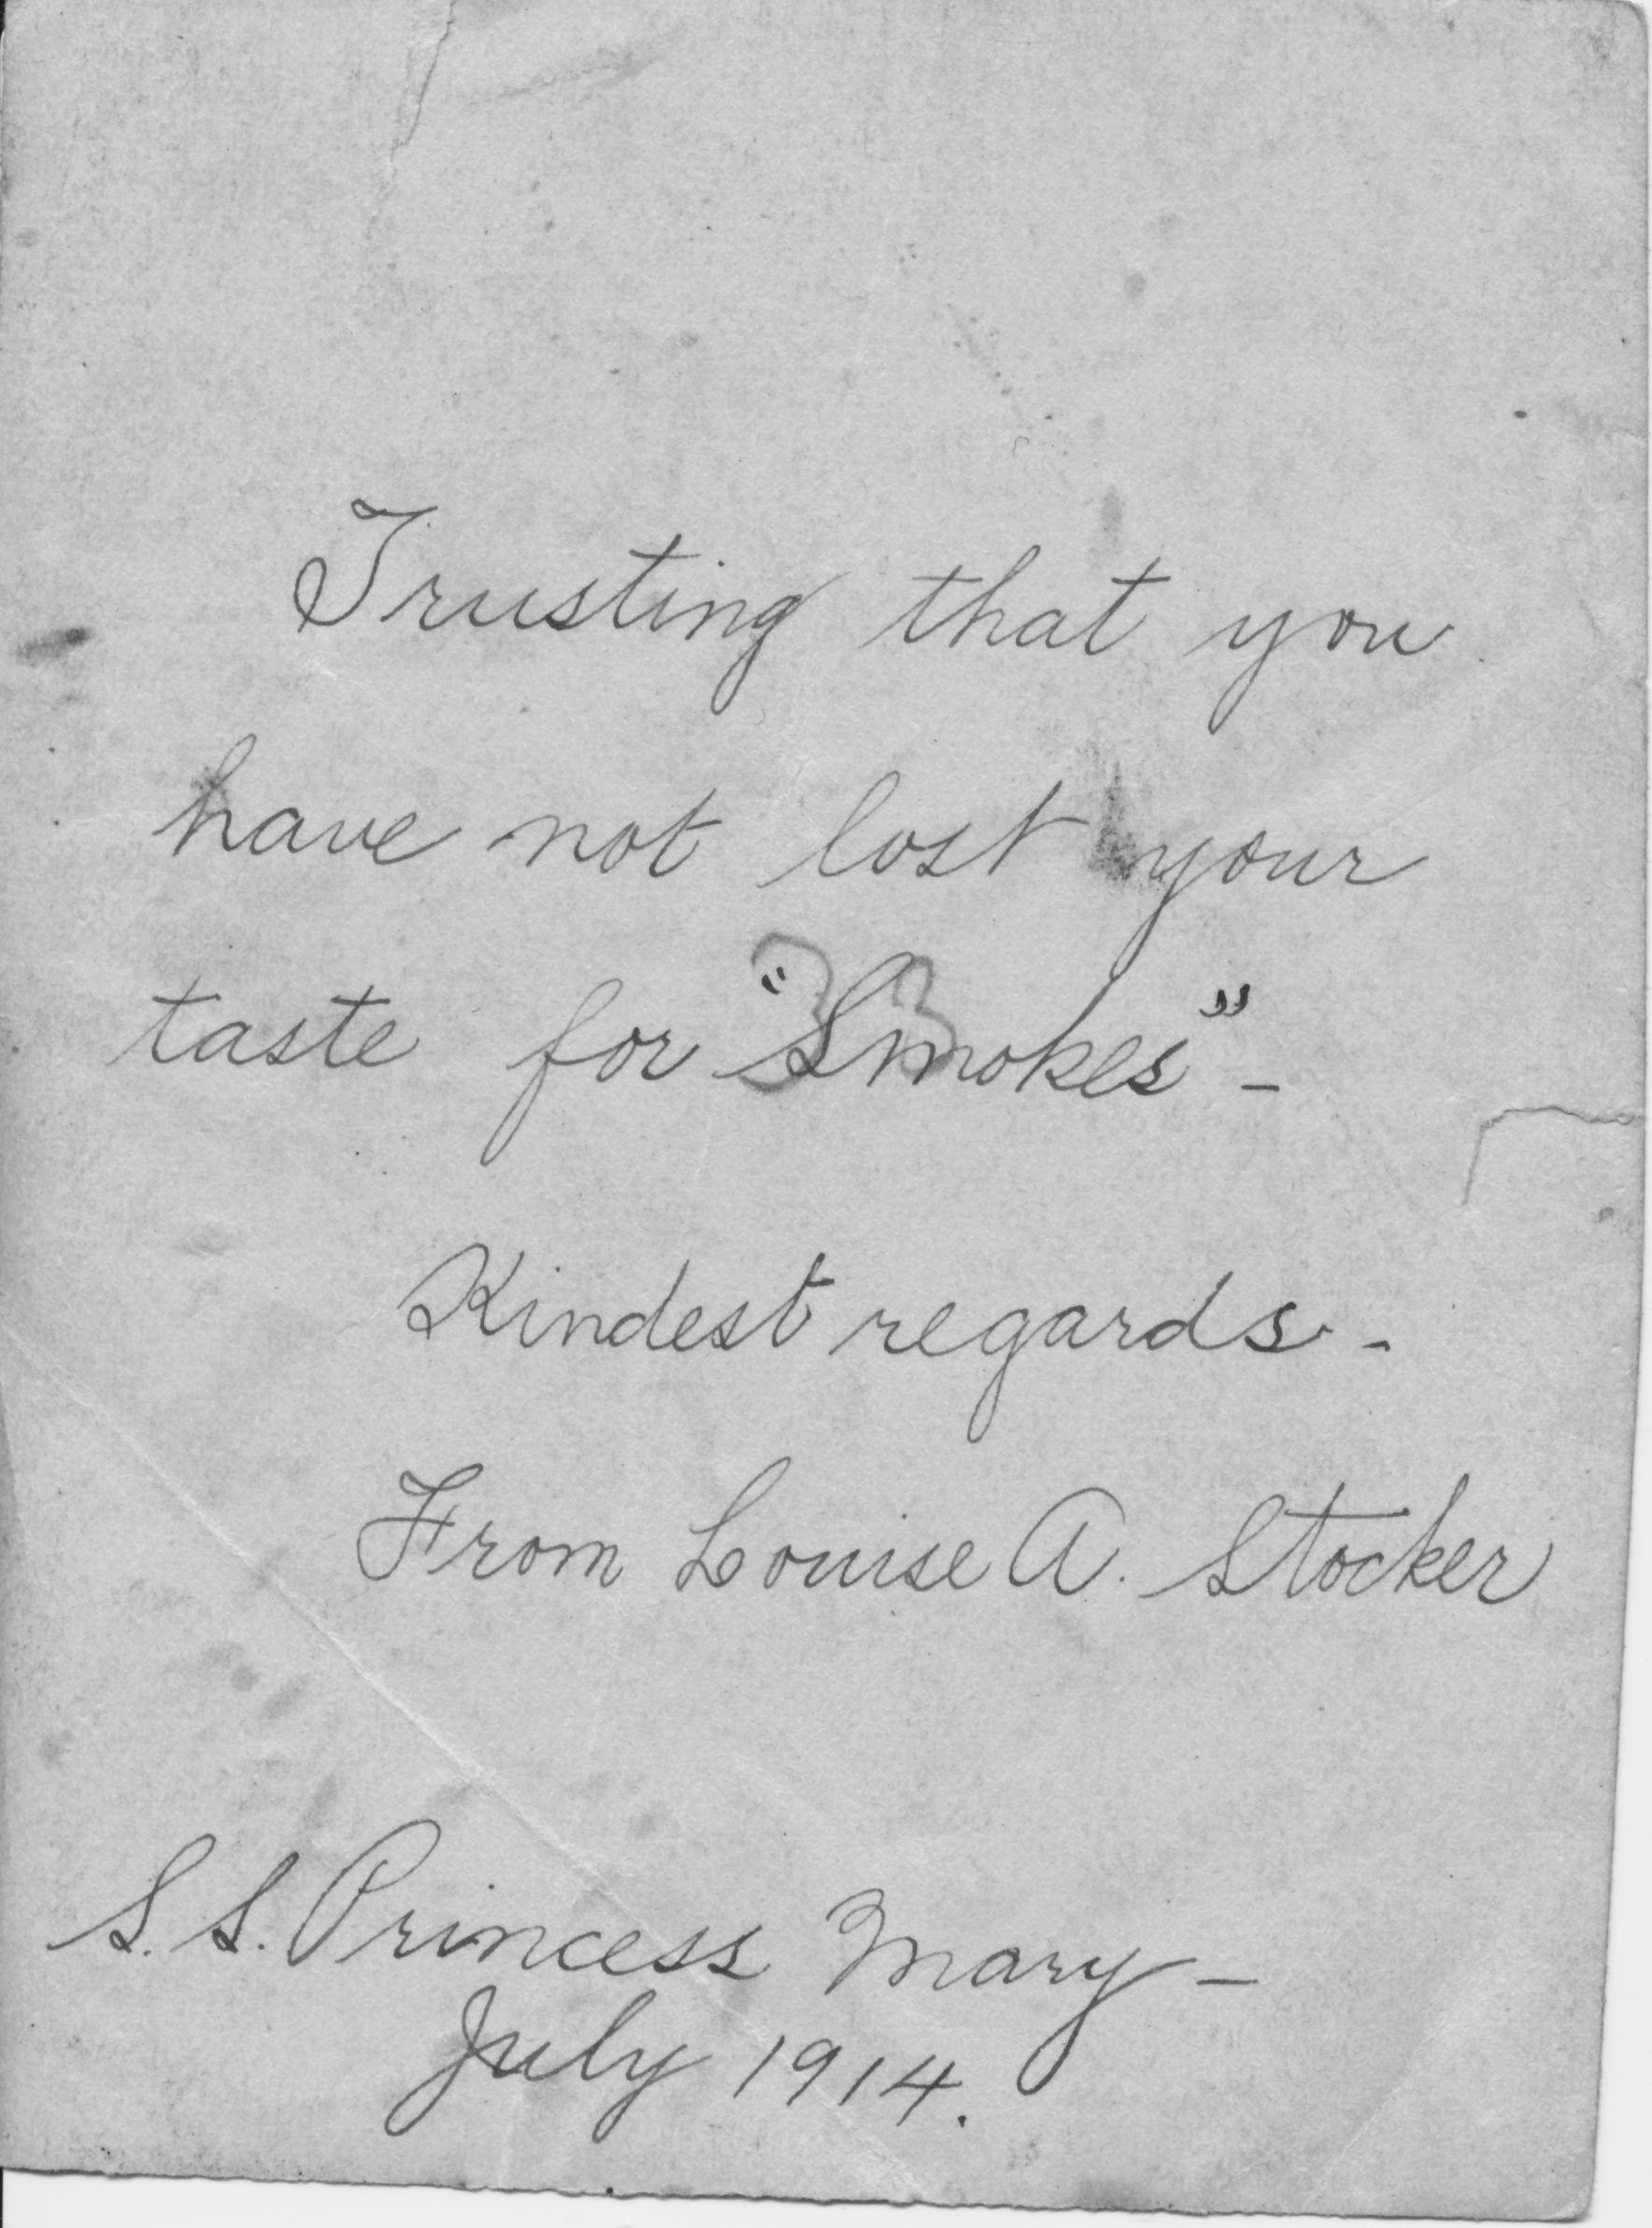 Trusting that you
have not lost your
taste for "Smokes" -
33
Kindest regards. -
From Louise A. Stocker
S.S. Princess Mary -
July 1914.